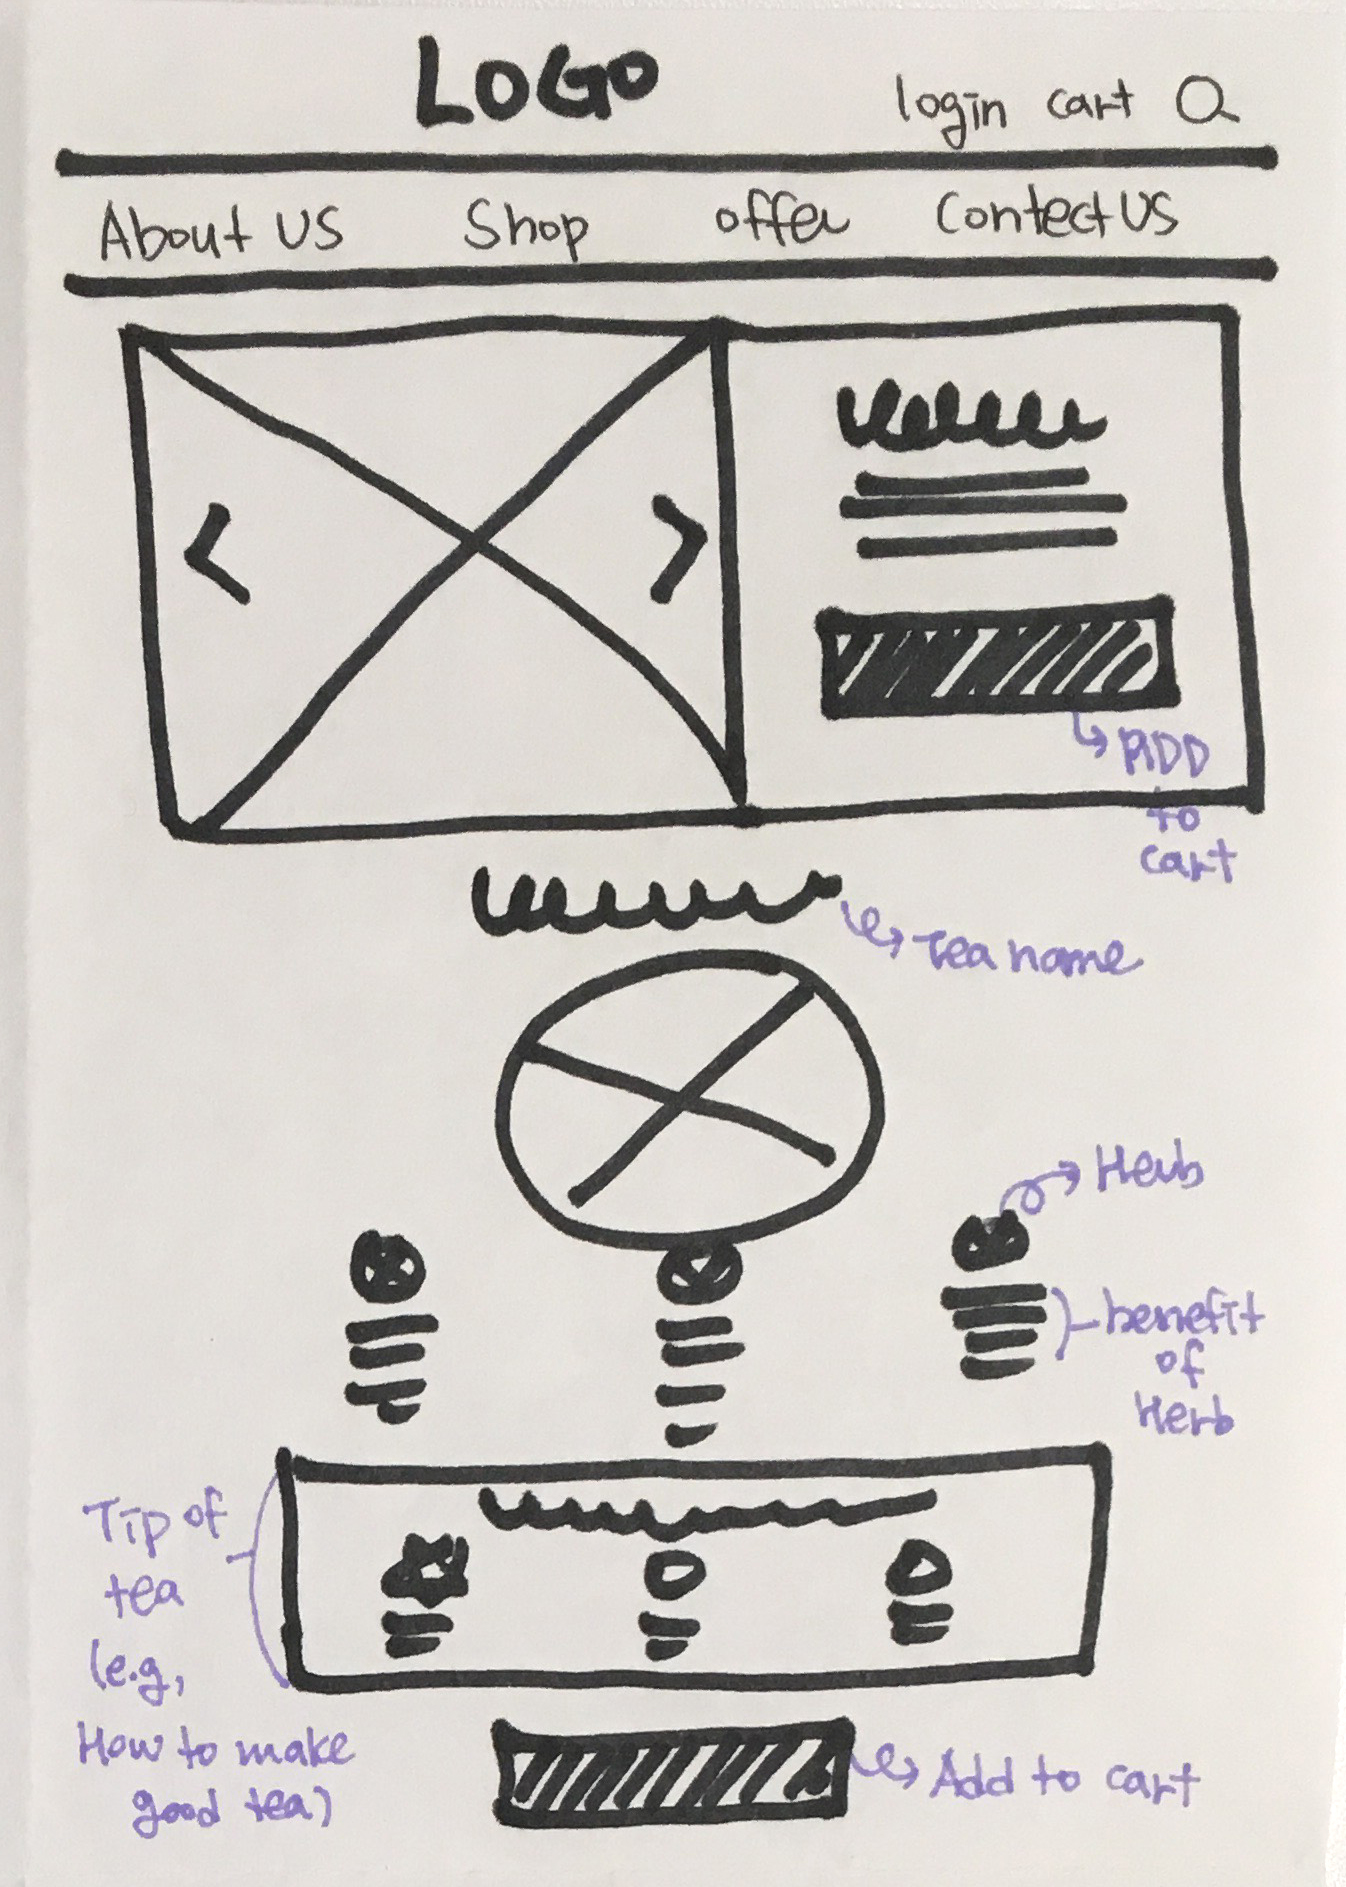 LOGO
login cart
About US Shop offer Contect US
ADD
to
cart
Tea name
Herb
benefit
of
Herb
Tip of
tea
(e.g,
How to make
good tea)
Add to cart